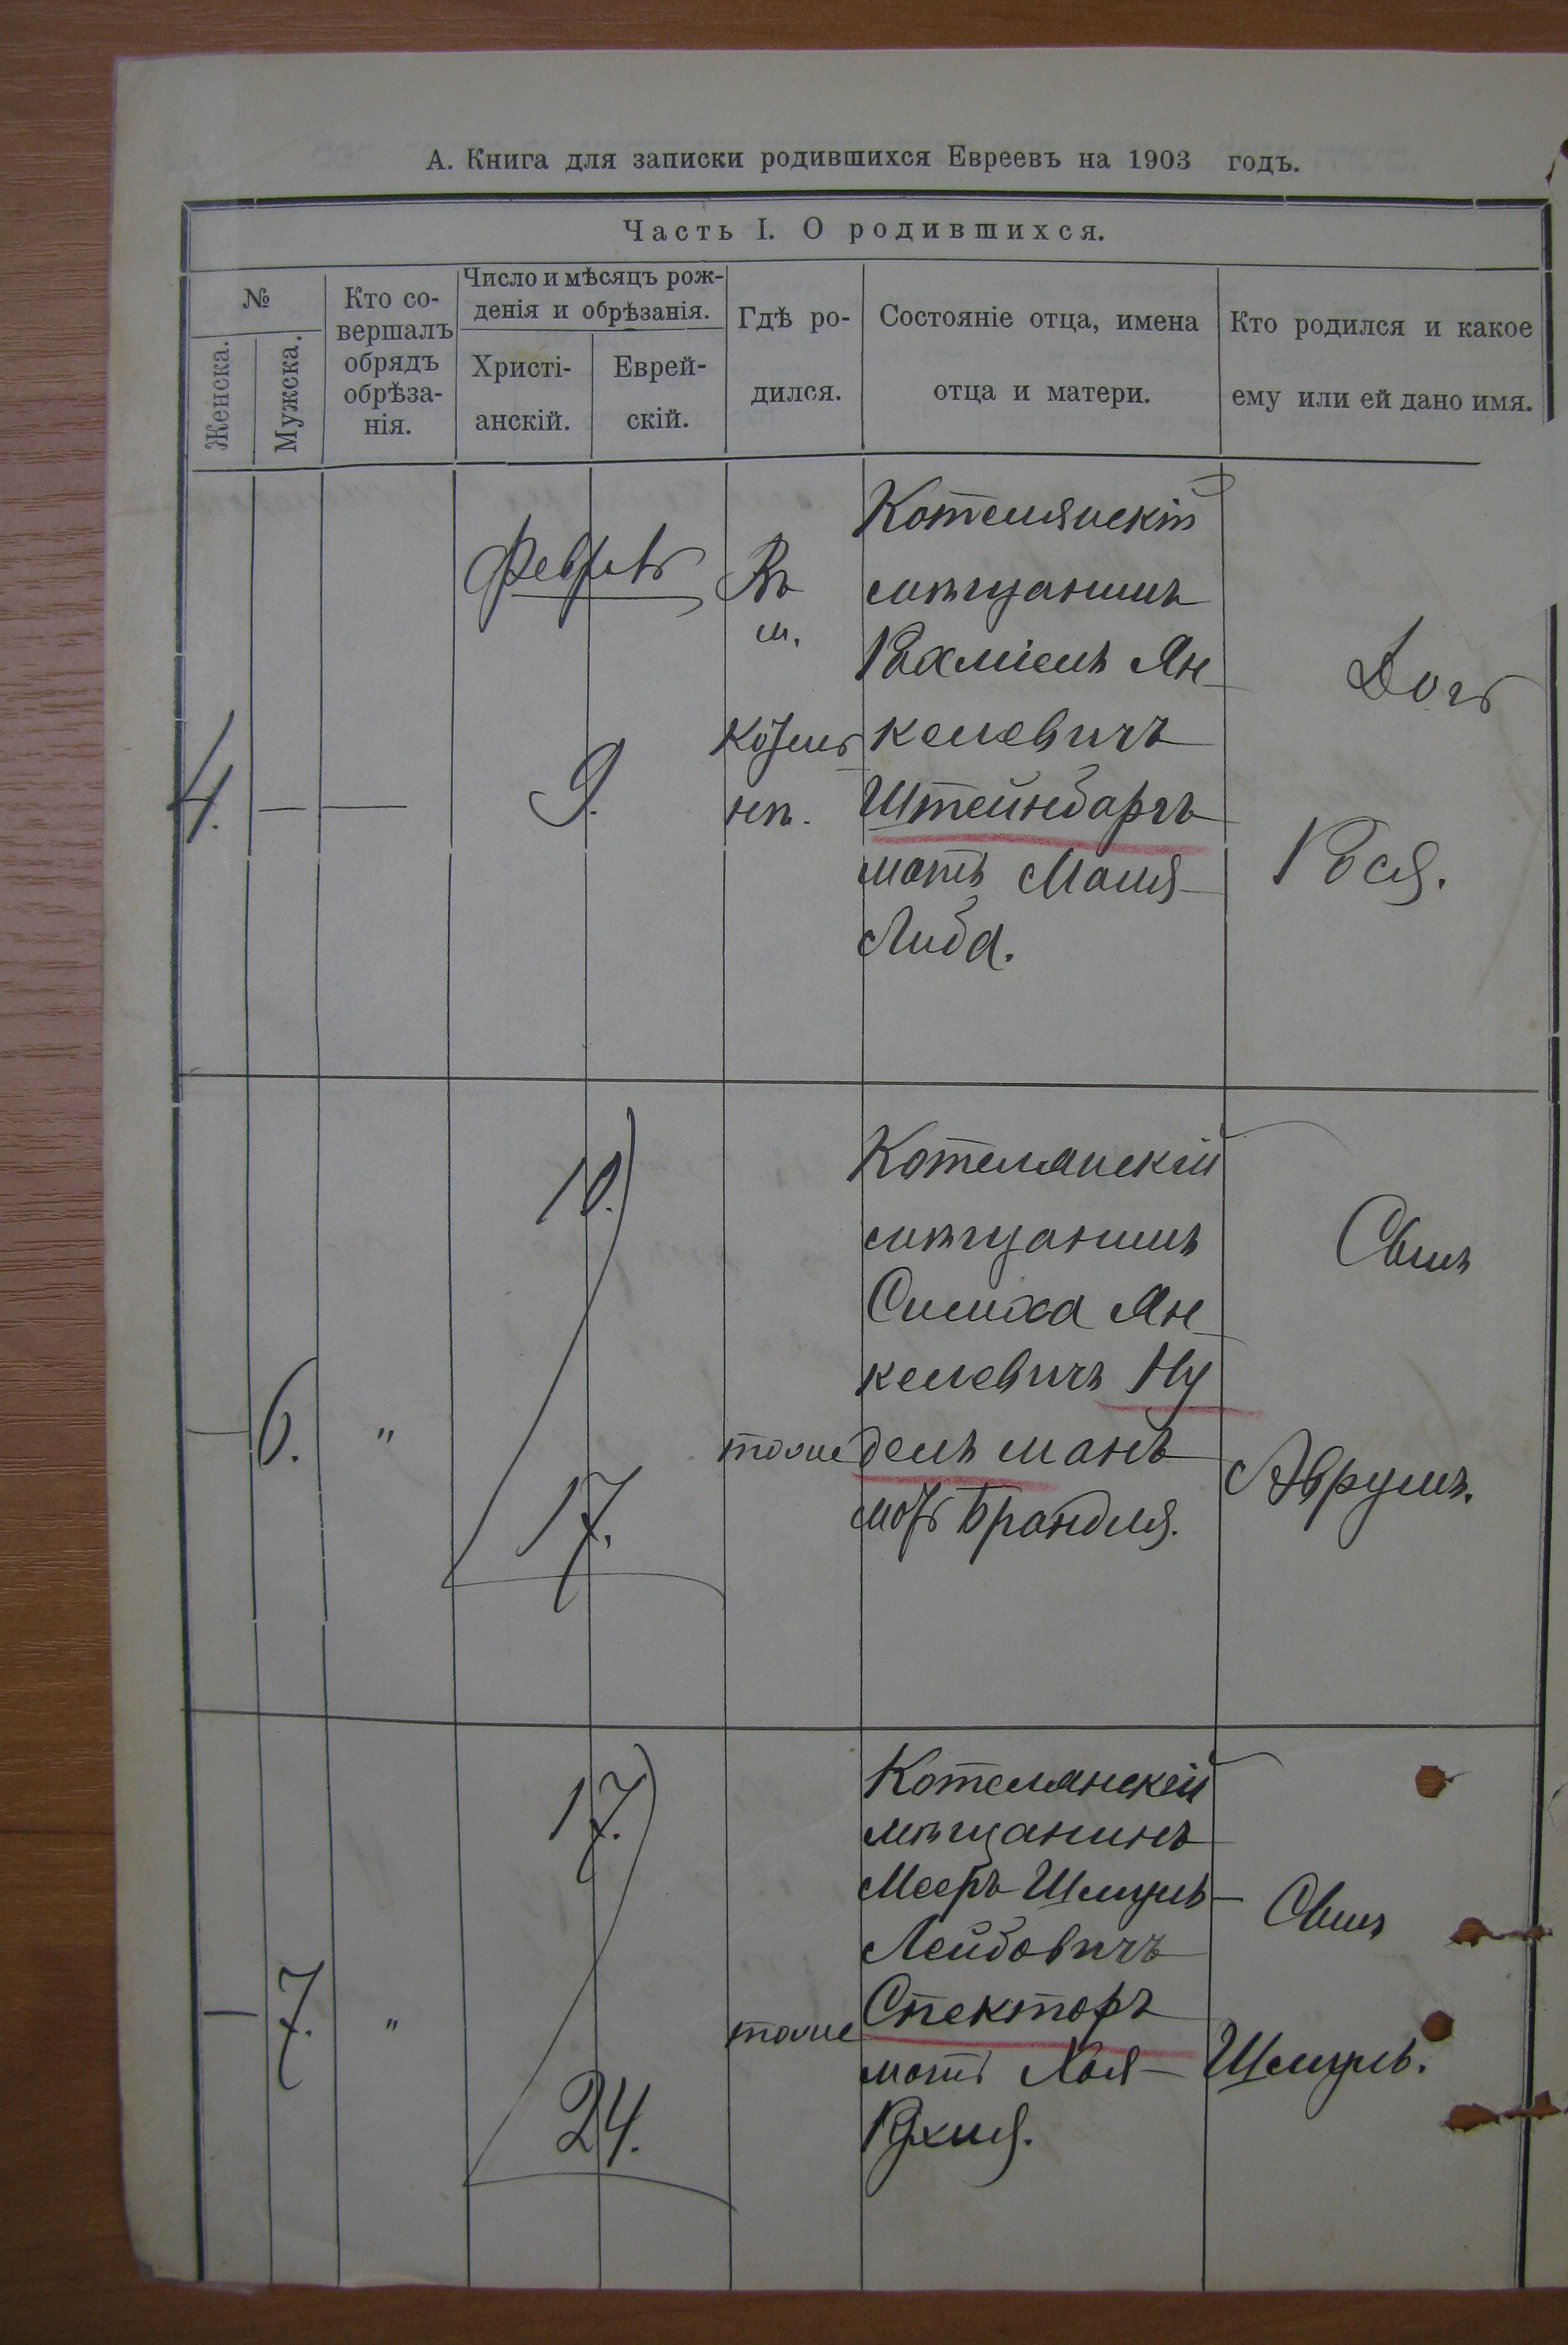 А. Книга для записки родившихся Евреевъ на 1903 годъ.
Часть I. О родившихся.
№
Женска.
Мужска.
Кто со-
вершалъ
обрядъ
обрѣза-
нія.
Число и мѣсяцъ рож-
денія и обрѣзанія.
Христі-
анскій.
Еврей-
скій.
Гдѣ ро-
дился.
Состояніе отца, имена
отца и матери.
Кто родился и какое
ему или ей дано имя.
4.
—
—
9.
Въ
м.
нѣ.
Котелянскій
мѣщанинъ
Рахміель Ян
келевичъ
Штейнбаргъ
мать Маля
Либа.
Дочь
Рося.
—
6.
"
10.
17.
тоже
Котелянскій
мѣщанинъ
Симха Ян
келевичъ Ну
дель манъ
мать Брандля.
Сынъ
Аврумъ.
—
7.
"
17.
24.
тоже
Котелянскій
мѣщанинъ
Мееръ Шмуль
Лейбовичъ
Спекторъ
мать Хая
Рухля.
Сынъ
Шмуль.